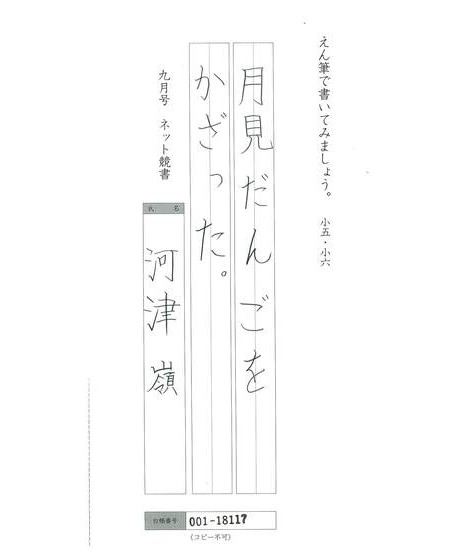 えん筆で書いてみましょう。 小五・小六
月見だんごを
かざった。
九月号 ネット競書
氏 名
河津 嶺
台帳番号 001-18117
(コピー不可)